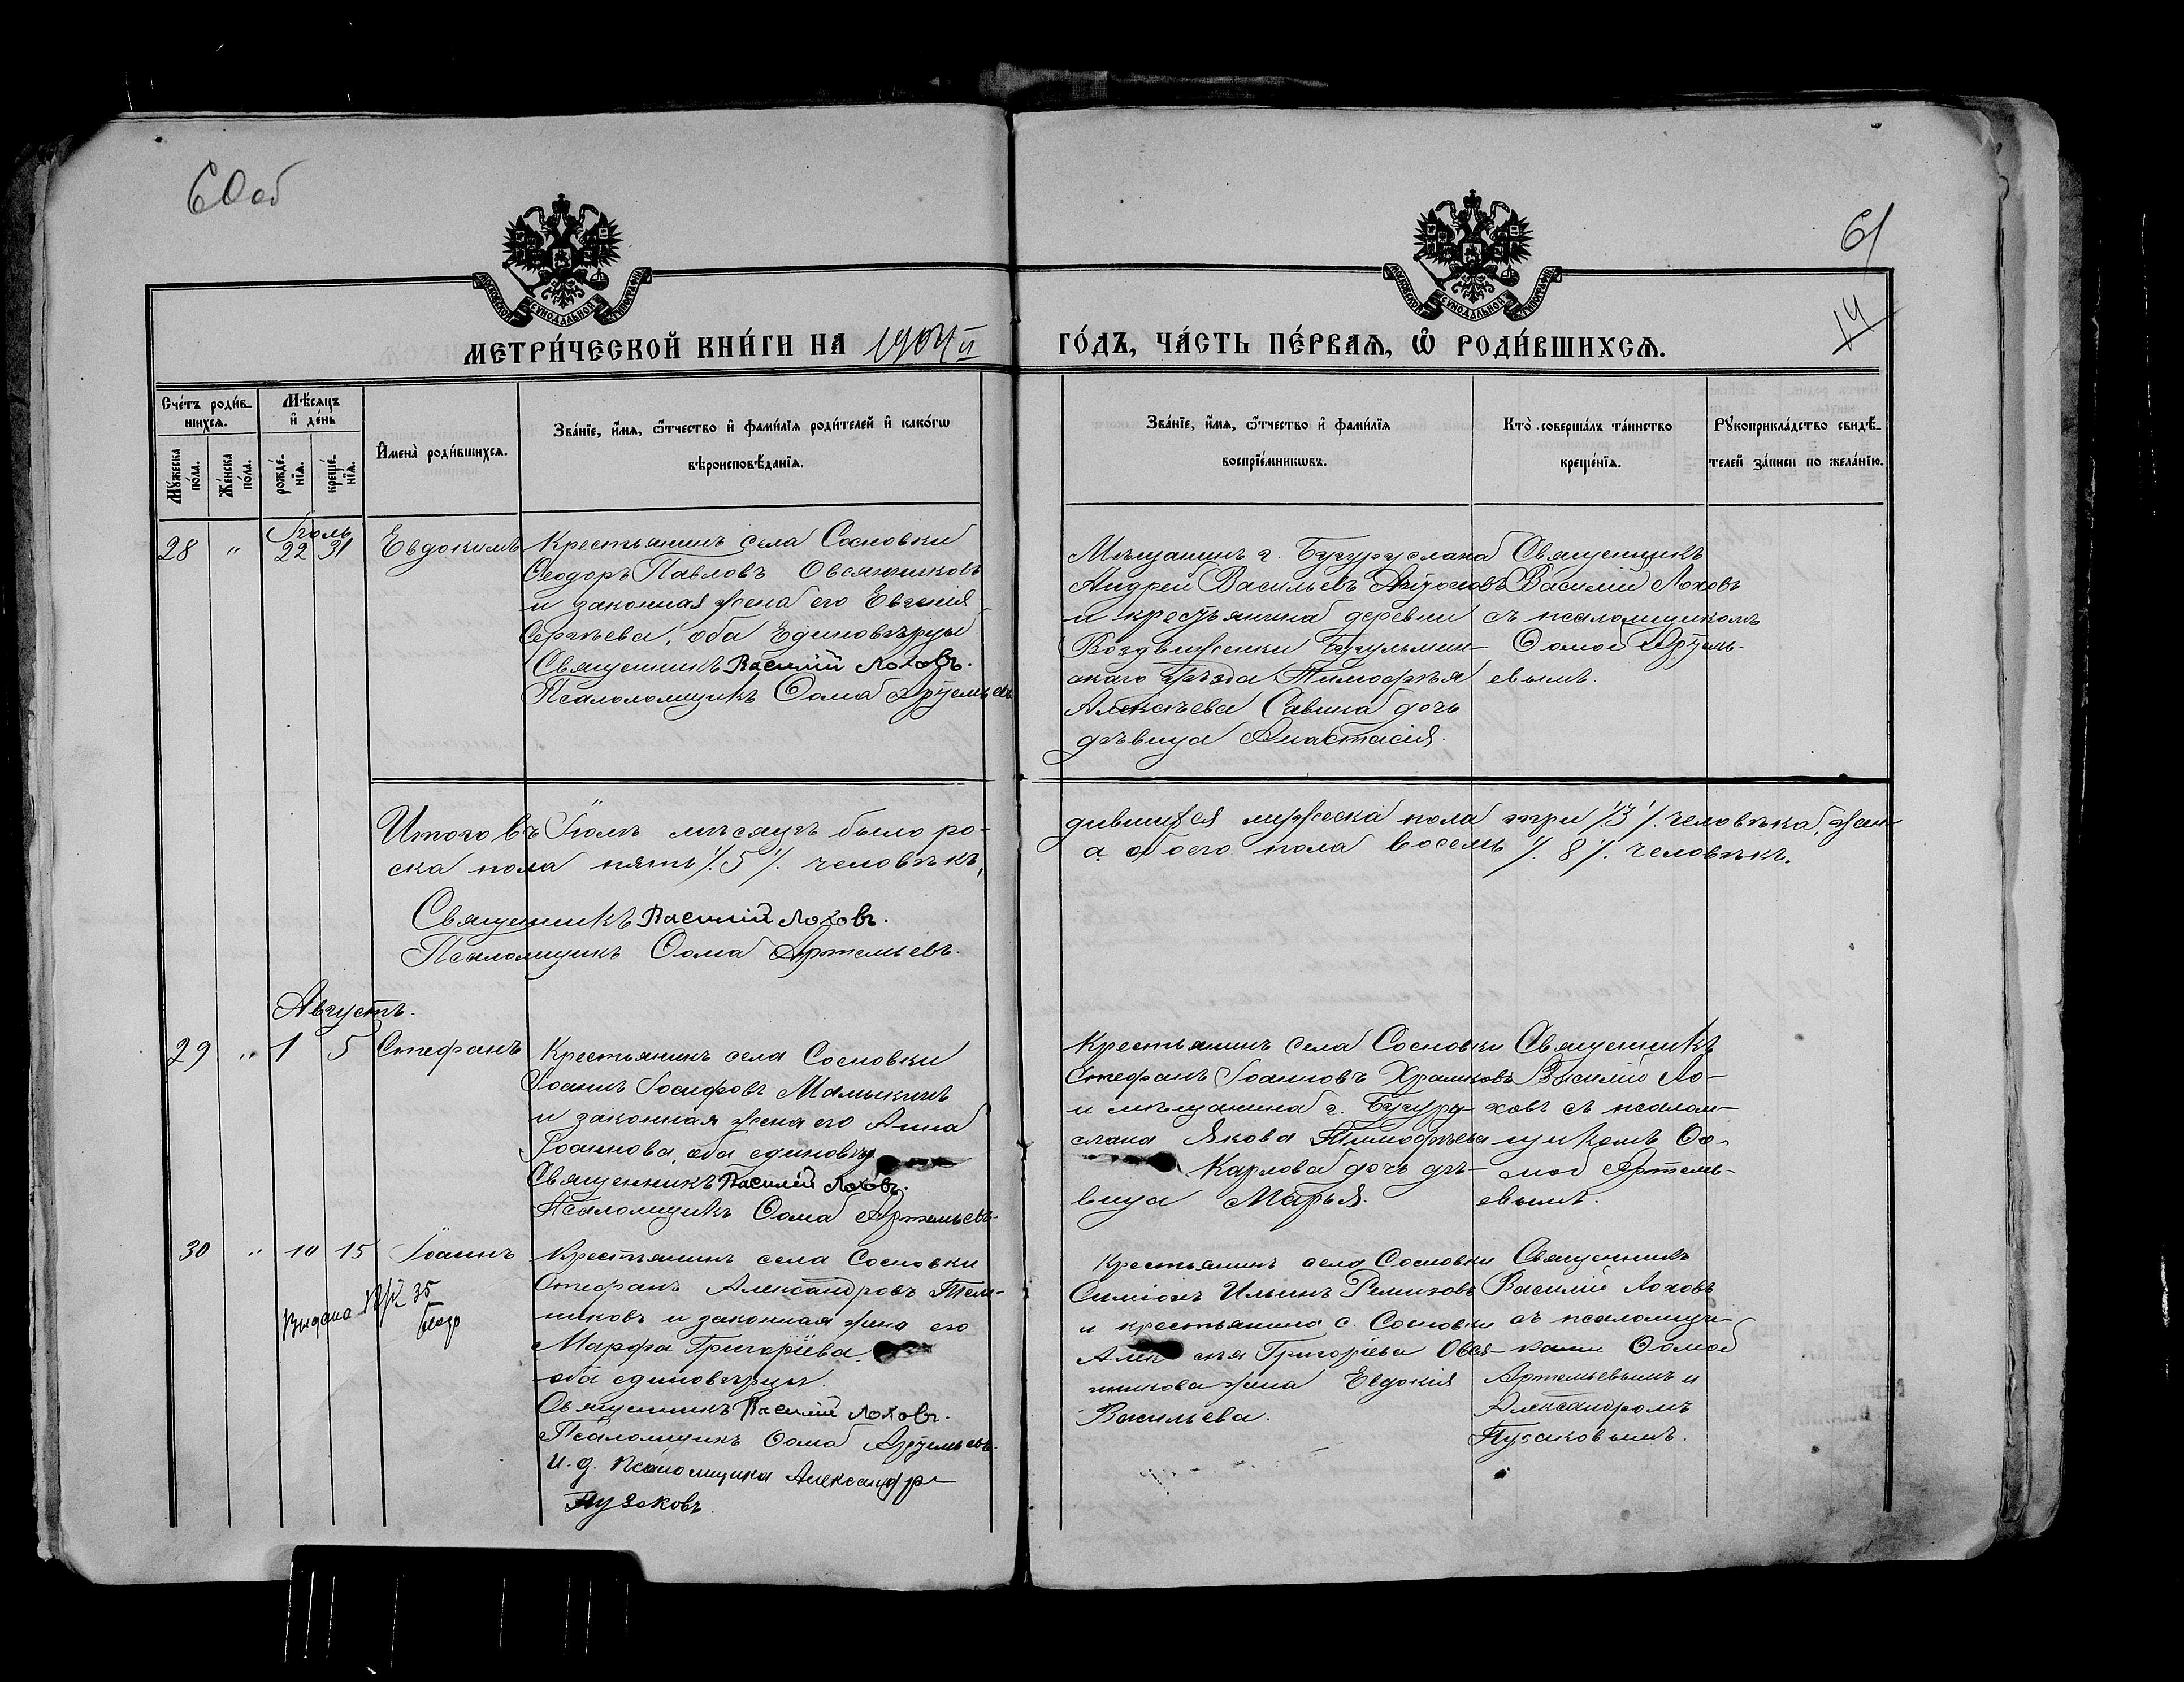 60 об
61
14
МОСКОВСКОЙ СѴНОДАЛЬНОЙ ТИПОГРАФІИ
МОСКОВСКОЙ СѴНОДАЛЬНОЙ ТИПОГРАФІИ
МЕТРИ́ЧЕСКОЙ КНИ́ГИ НА 1904й ГО́ДЪ, ЧА́СТЬ ПЕ́РВАѦ, Ѡ҆ РОДИ́ВШИХСѦ.
Сче́тъ роди́в-
шихсѧ.
Мꙋ́жеска по́ла.
Же́нска по́ла.
Мѣ́сѧцъ и҆ де́нь
рожде́-
нїѧ.
креще́-
нїѧ.
И҆мена̀ роди́вшихсѧ.
Зва́нїе, и҆́мѧ, ѻ҆́тчество и҆ фами́лїѧ роди́телей и҆ како́гѡ
вѣроисповѣ́данїѧ.
Зва́нїе, и҆́мѧ, ѻ҆́тчество и҆ фами́лїѧ
воспрїе́мникѡвъ.
Кто̀ соверша́лъ та́инство
креще́нїѧ.
Рꙋкоприкла́дство свидѣ́-
телей за́писи по жела́нїю.
Іюль
28 " 22 31 Евдокимъ
Крестьянинъ села Сосновки
Ѳеодоръ Павловъ Овсянниковъ
и законная жена его Евгения
Сергѣева, оба Единовѣрцы
Священникъ Василій Лоховъ.
Псаломщикъ Ѳома Артемьевъ
Мѣщанинъ г. Бугуруслана
Андрей Васильевъ
и крестьянина деревни
Воздвиженки Бугульмин-
скаго уѣзда Тимофѣя
Алексѣева Савина дочь
дѣвица Анастасія.
Священникъ
Василій Лоховъ
съ псаломщикомъ
Ѳомою Артемь-
евымъ.
Итого въ Іюлѣ мѣсяцѣ было ро-
дившихся мужеска пола три /.3/. человѣка, жен-
ска пола пять /.5/. человѣкъ,
а обоего пола восемь /.8/. человѣкъ.
Священникъ Василій Лоховъ.
Псаломщикъ Ѳома Артемьевъ.
Августъ.
29 " 1 5 Стефанъ
Крестьянинъ села Сосновки
Іоаннъ Іосифовъ Мамыкинъ
и законная жена его Анна
Іоаннова, оба единовѣр
Священникъ Василій Лоховъ.
Псаломщикъ Ѳома Артемьевъ
Крестьянинъ села Сосновки
Стефанъ Іоанновъ Храмковъ
и мѣщанина г. Бугуру-
слана Якова Тимофѣева
Карлова дочь дѣ-
вица Марья.
Священникъ
Василій Ло-
ховъ съ псалом-
щикомъ Ѳо-
мою Артемь-
евымъ.
30 " 10 15 Іоаннъ
Выдана
35
Крестьянинъ села Сосновки
Стефанъ Александровъ Теле-
никовъ и законная жена его
Марфа Григоріева
оба единовѣрцы.
Священникъ Василій Лоховъ.
Псаломщикъ Ѳома Артемьевъ.
И. д. псаломщика Александръ
Пузаковъ.
Крестьянинъ села Сосновки
Симіонъ Ильинъ Ремизовъ
и крестьянина с. Сосновки
Алек сѣя Григоріева Овся-
никова жена Евдокія
Васильева.
Священникъ
Василій Лоховъ
съ псаломщи-
ками Ѳомою
Артемьевымъ и
Александромъ
Пузаковымъ.